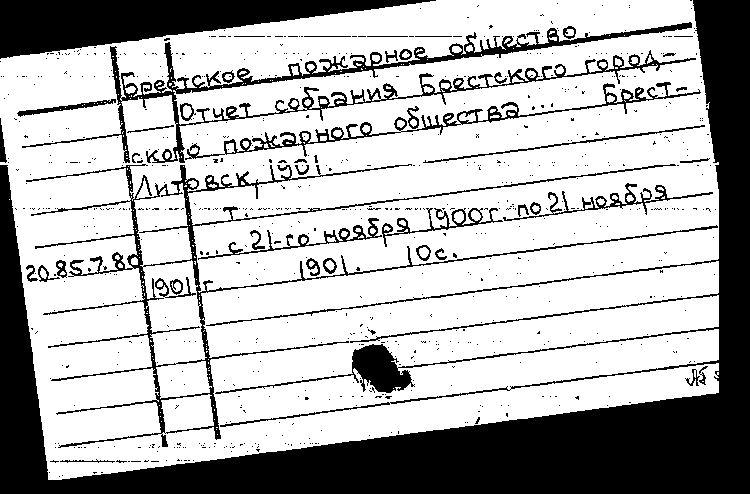 Брестское пожарное общество.
Отчет собрания Брестского город-
ского пожарного общества... Брест-
Литовск, 1901.
т.
... с 21-го ноября 1900г. по 21 ноября
20.85.7.80
1901 г. 1901. 10с.